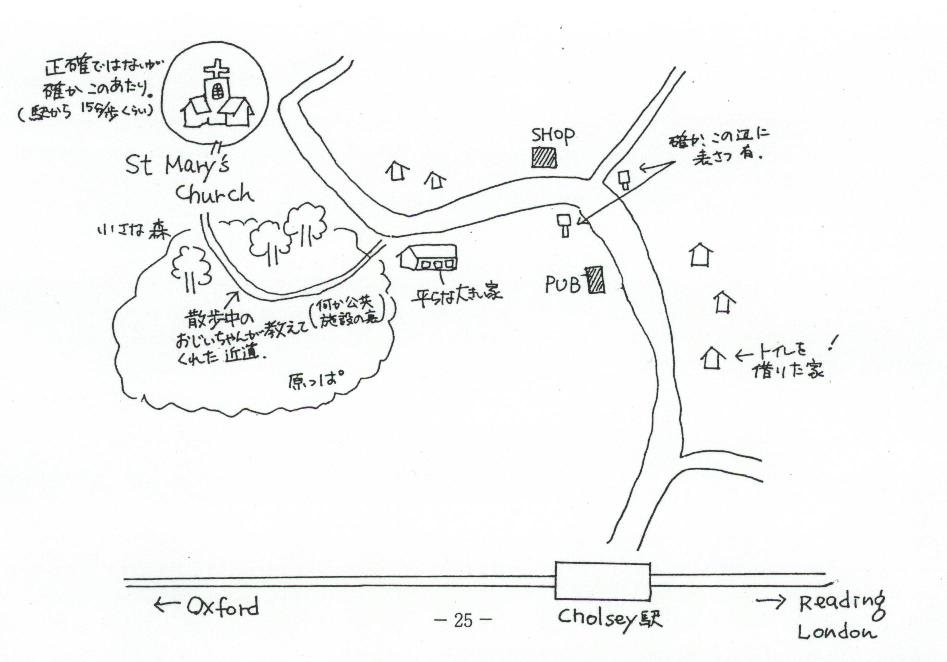 正確ではないが
確か このあたり。
(駅から 15分歩くらい)
St Mary's
Church
小さな森
散歩中の
おじいちゃんが教えて
くれた 近道.
(何か公共
施設の裏)
原っぱ
平らな大きい家
SHOP
確か、この辺に
表さつ 有.
PUB
←トイレを
借りた家!
← Oxford
- 25 -
Cholsey駅
→ Reading
London